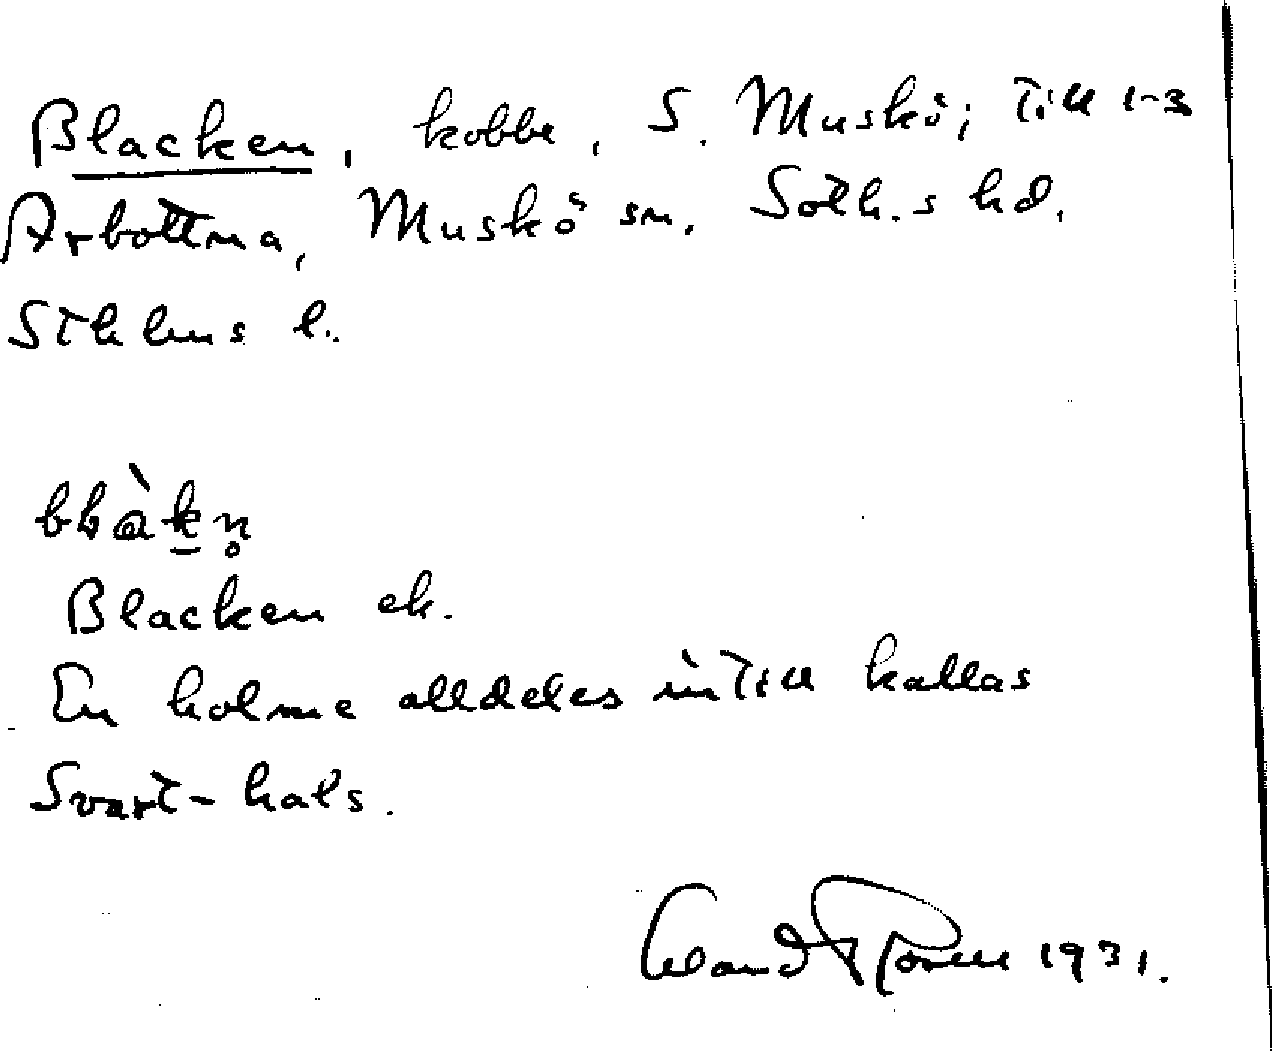 Blacken, kobbe, S. Muskö; till 1-3
Arbottna, Muskö sn. Soth.s hd.
Sthlms l.
blàkn̥
Blacken ek.
En holme alldeles intill kallas
Svart-hals.
Rosell 1931.